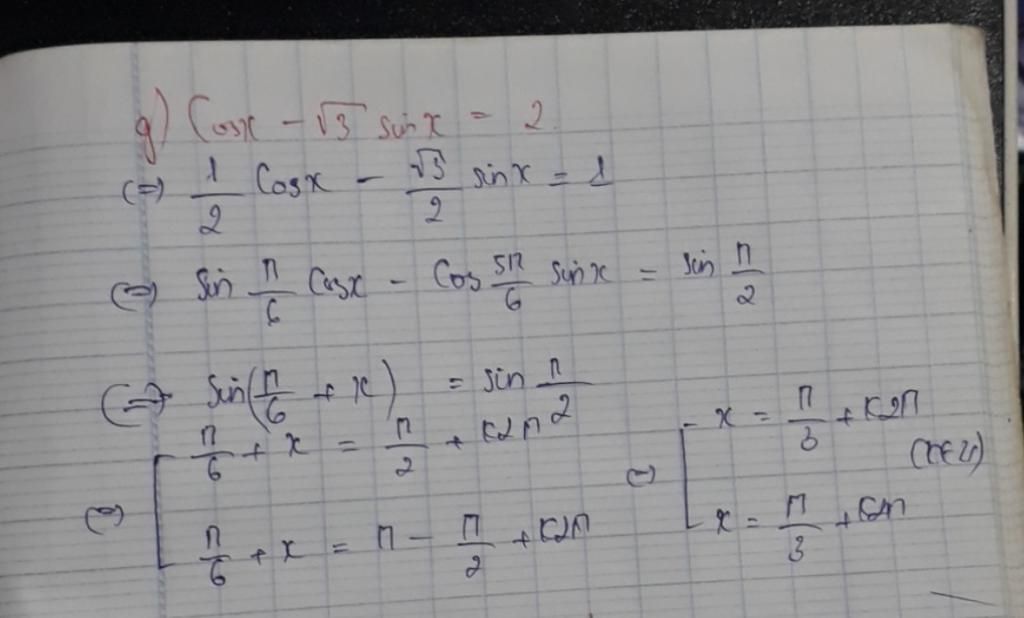 g) Cosx - √3 sinx = 2
(=) 1/2 Cosx - √3/2 sinx = 1
(=) sin π/6 Cosx - Cos 5π/6 sinx = sin π/2
(=) sin(π/6 + x) = sin π/2
(=) [ π/6 + x = π/2 + k2π
π/6 + x = π - π/2 + k2π
(=) [ x = π/3 + k2π
x = π/3 + k2π
(k∈Z)